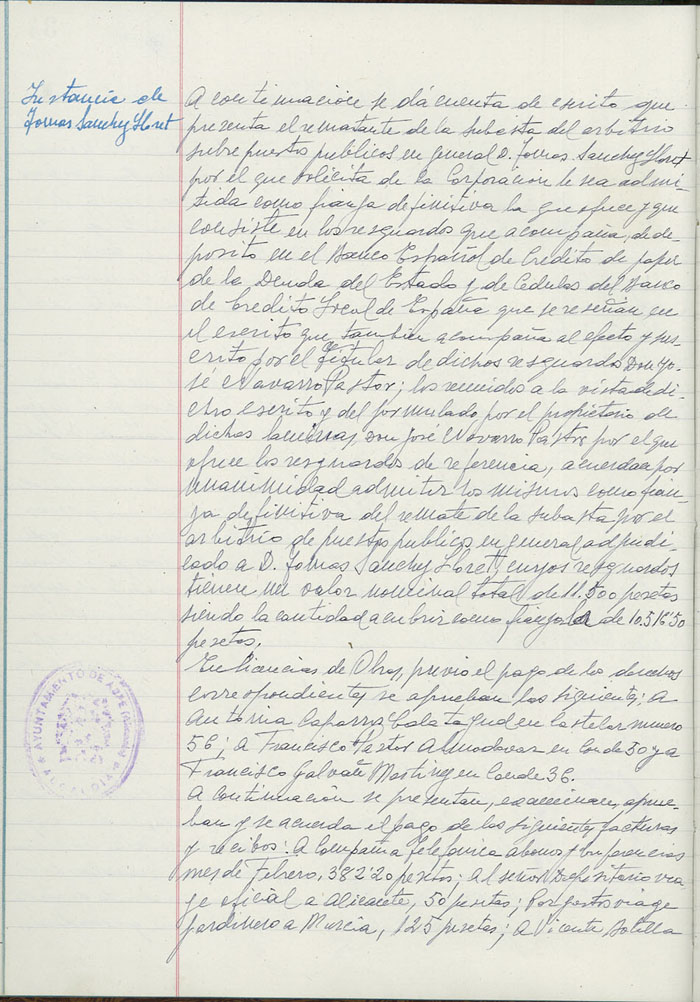 Instancia de
Tomas Sanchez Lloret
A continuación se dá cuenta de escrito que
presenta el rematante de la subasta del arbitrio
sobre puestos publicos en general D. Tomas Sanchez Lloret
por el que solicita de la Corporacion le sea admi-
tida como fianza definitiva la que ofrece y que
consiste en los resguardos que acompaña, de de-
posito en el Banco Español de Crédito de papel
de la Deuda del Estado y de Cédulas del Banco
de Credito Local de España que se reseñan en
el escrito que tambien acompaña al efecto y sus-
crito por el titular de dichos resguardos Don Jo-
sé Navarro Pastor; los reunidos a la vista de di-
cho escrito y del formulado por el propietario de
dichas laminas, don José Navarro Pastor por el que
ofrece los resguardos de referencia, acuerdan por
unanimidad admitir los mismos como fian-
za definitiva del remate de la subasta por el
arbitrio de puestos publicos en general adjudi-
cado a D. Tomas Sanchez Lloret, cuyos resguardos
tienen un valor nominal total de 11.500 pesetas
siendo la cantidad a cubrir como fianza la de 10.516'50
pesetas.
En licencias de Obras, previo el pago de los derechos
correspondientes se aprueban las siguientes; A
Antonia Caparros Calatayud en Castelar numero
56; a Francisco Pastor Almodovar en Conde 30 y a
Francisco Galvañ Martinez en Conde 36.
A continuación se presentan, examinan, aprue-
ban y se acuerda el pago de las siguientes facturas
y recibos: A Compañia Telefonica abonos y conferencias
mes de Febrero, 382'20 pesetas; Al señor Depositario via-
je oficial a Alicante, 50 pesetas; Por gastos viaje
Jardinero a Murcia, 125 pesetas; A Vicente Botella
AYUNTAMIENTO DE ASPE (Alicante)